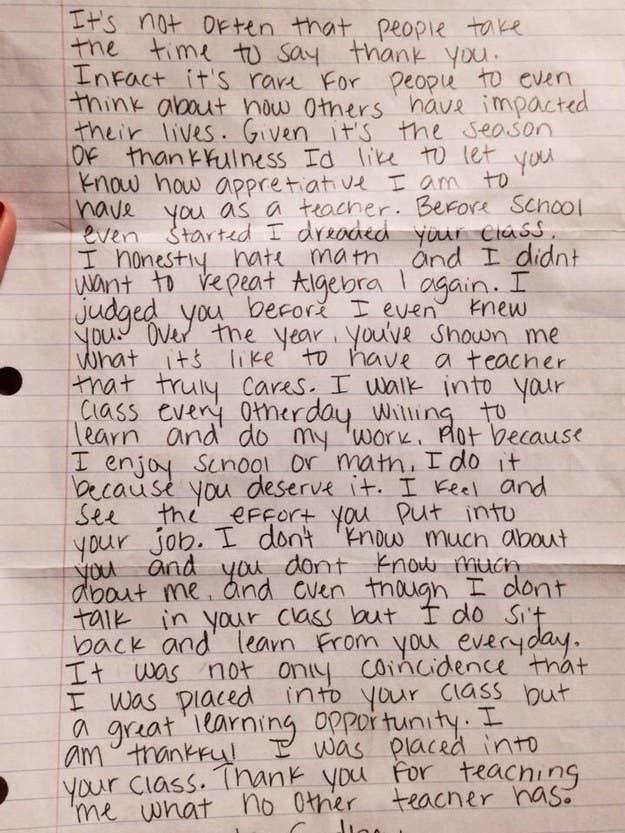 It's not often that people take
the time to say thank you.
Infact it's rare for people to even
think about how others have impacted
their lives. Given it's the season
of thankfulness Id like to let you
know how appretiative I am to
have you as a teacher. Before School
even started I dreaded your class.
I honestly hate math and I didnt
want to repeat Algebra 1 again. I
judged you before I even knew
you. Over the year, you've shown me
what it's like to have a teacher
that truly cares. I walk into your
class every otherday willing to
learn and do my work. Not because
I enjoy school or math, I do it
because you deserve it. I feel and
see the effort you put into
your job. I don't know much about
you and you dont know much
about me, and even though I dont
talk in your class but I do sit
back and learn from you everyday.
It was not only coincidence that
I was placed into your class but
a great learning opportunity. I
am thankful I was placed into
your class. Thank you for teaching
me what no other teacher has.